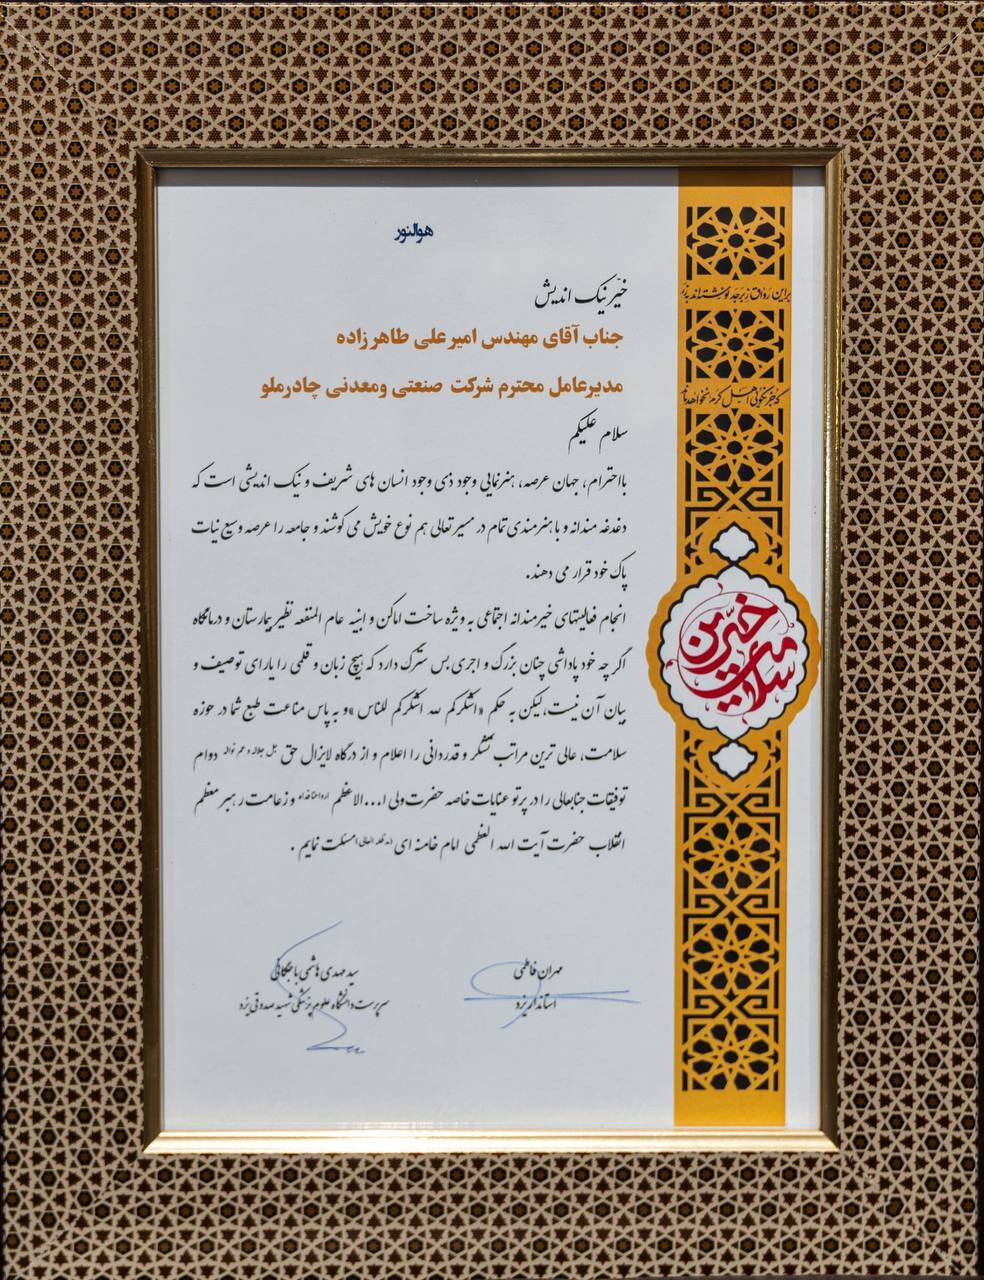 هوالنور
خیّر نیک اندیش
جناب آقای مهندس امیرعلی طاهرزاده
مدیرعامل محترم شرکت صنعتی ومعدنی چادرملو
سلام علیکم
بااحترام، جهان عرصه، هنرنمایی وجود ذی وجود انسان های شریف و نیک اندیشی است که
دغدغه مندانه و باهنرمندی تمام در مسیر تعالی هم نوع خویش می کوشند و جامعه را عرصه وسیع نیات
پاک خود قرار می دهند.
انجام فعالیتهای خیرمندانه اجتماعی به ویژه ساخت اماکن و ابنیه عام المنفعه نظیر بیمارستان و درمانگاه
اگر چه خود پاداشی چنان بزرگ و اجری بس سترگ دارد که هیچ زبان و قلمی را یارای توصیف و
بیان آن نیست، لیکن به حکم «اشکرکم لله اشکرکم للناس» و به پاس مناعت طبع شما در حوزه
سلامت، عالی ترین مراتب تشکر و قدردانی را اعلام و از درگاه لایزال حق جل جلاله و عم نواله دوام
توفیقات جنابعالی را در پرتو عنایات خاصه حضرت ولی ا... الاعظم ارواحنافداه و زعامت رهبر معظم
انقلاب حضرت آیت الله العظمی امام خامنه ای (مدظله العالی) مسئلت نمایم .
مهران فاطمی
استاندار یزد
سید مهدی هاشمی باجگانی
سرپرست دانشگاه علوم پزشکی شهید صدوقی یزد
براین رواق زبرجد نوشته‌اند به زر
که جز نکوئی اهل کرم نخواهد ماند
خیّرین سلامت